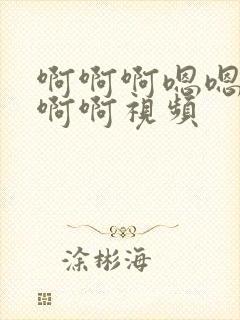 啊啊啊嗯嗯
啊啊視頻
涂彬海